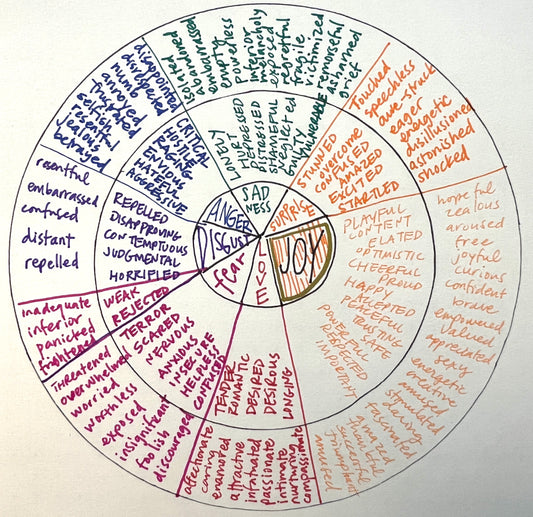 SAD
NESS
SURPRISE
JOY
LOVE
fear
DISGUST
ANGER
LONELY
HURT
DEPRESSED
DISTRESSED
SHAMEFUL
neglected
guilty
VULNERABLE
isolated
embarrassed
empty
powerless
inferior
melancholy
exposed
regretful
fragile
victimized
remorseful
ashamed
grief
STUNNED
overcome
CONFUSED
AMAZED
EXCITED
STARTLED
Touched
speechless
awe struck
eager
energetic
disillusioned
astonished
shocked
PLAYFUL
CONTENT
ELATED
OPTIMISTIC
CHEERFUL
PROUD
HAPPY
ACCEPTED
PEACEFUL
TRUSTING
SAFE
POWERFUL
RESPECTED
IMPORTANT
hopeful
zealous
aroused
free
joyful
curious
confident
brave
empowered
valued
appreciated
sexy
energetic
creative
amused
stimulated
daring
fascinated
thankful
successful
triumphant
TENDER
ROMANTIC
DESIRED
DESIROUS
LONGING
affectionate
caring
enamored
attractive
infatuated
passionate
intimate
nurturing
compassionate
WEAK
REJECTED
TERROR
SCARED
NERVOUS
ANXIOUS
INSECURE
HELPLESS
CONFUSED
inadequate
inferior
panicked
frightened
THREATENED
overwhelmed
worried
worthless
exposed
insignificant
foolish
discouraged
REPELLED
DISAPPROVING
CONTEMPTUOUS
JUDGMENTAL
HORRIFIED
resentful
embarrassed
confused
distant
repelled
CRITICAL
HOSTILE
RAGING
ENVIOUS
HATEFUL
AGGRESSIVE
disappointed
disrespected
numb
annoyed
frustrated
selfish
resentful
jealous
betrayed